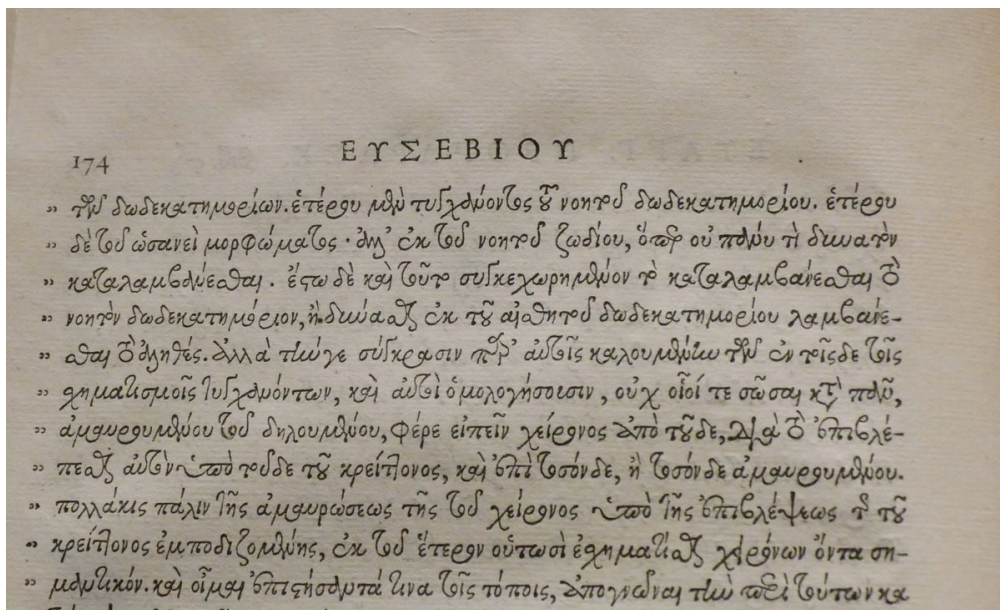 174 ΕΥΣΕΒΙΟΥ
„ τῶν δωδεκατημορίων. ἑτέρου μὲν τυγχάνοντος τοῦ νοητοῦ δωδεκατημορίου. ἑτέρου
„ δὲ τοῦ ὡσανεὶ μορφώματος· ἀλλ' ἐκ τοῦ νοητοῦ ζωδίου, ὅπερ οὐ πάνυ τὶ δυνατὸν
„ καταλαμβάνεσθαι. ἔστω δὲ καὶ τοῦτο συγκεχωρημένον τὸ καταλαμβάνεσθαι τὸ
„ νοητὸν δωδεκατημόριον, ἢ δύνασθαι ἐκ τοῦ αἰσθητοῦ δωδεκατημορίου λαμβάνε-
„ σθαι τὸ ἀληθές. ἀλλὰ τήν γε σύγκρασιν παρ' αὐτοῖς καλουμένην τῶν ἐν τοῖσδε τοῖς
„ χηματισμοῖς τυγχανόντων, καὶ αὐτοὶ ὁμολογήσουσιν, οὐχ οἷοί τε σῶσαι κατὰ πᾶν,
„ ἀμαυρουμένου τοῦ δηλουμένου, φέρε εἰπεῖν χείρονος ἀπὸ τοῦδε, διὰ τὸ ἐπιβλέ-
„ πεσθαι αὐτὸν ὑπὸ τοῦδε τοῦ κρείττονος, καὶ ἐπὶ τοσόνδε, ἢ τοσόνδε ἀμαυρουμένου.
„ πολλάκις πάλιν τῆς ἀμαυρώσεως τῆς τοῦ χείρονος ὑπὸ τῆς ἐπιβλέψεως τῆς τοῦ
„ κρείττονος ἐμποδιζομένης, ἐκ τοῦ ἕτερον οὑτωσὶ ἐσχηματίσθαι χειρόνων ὄντα ση-
„ μαντικόν. καὶ οἶμαι ἐπιστήσαντά τινα τοῖς τόποις, ἀπογνῶναι τὴν περὶ τούτων κα